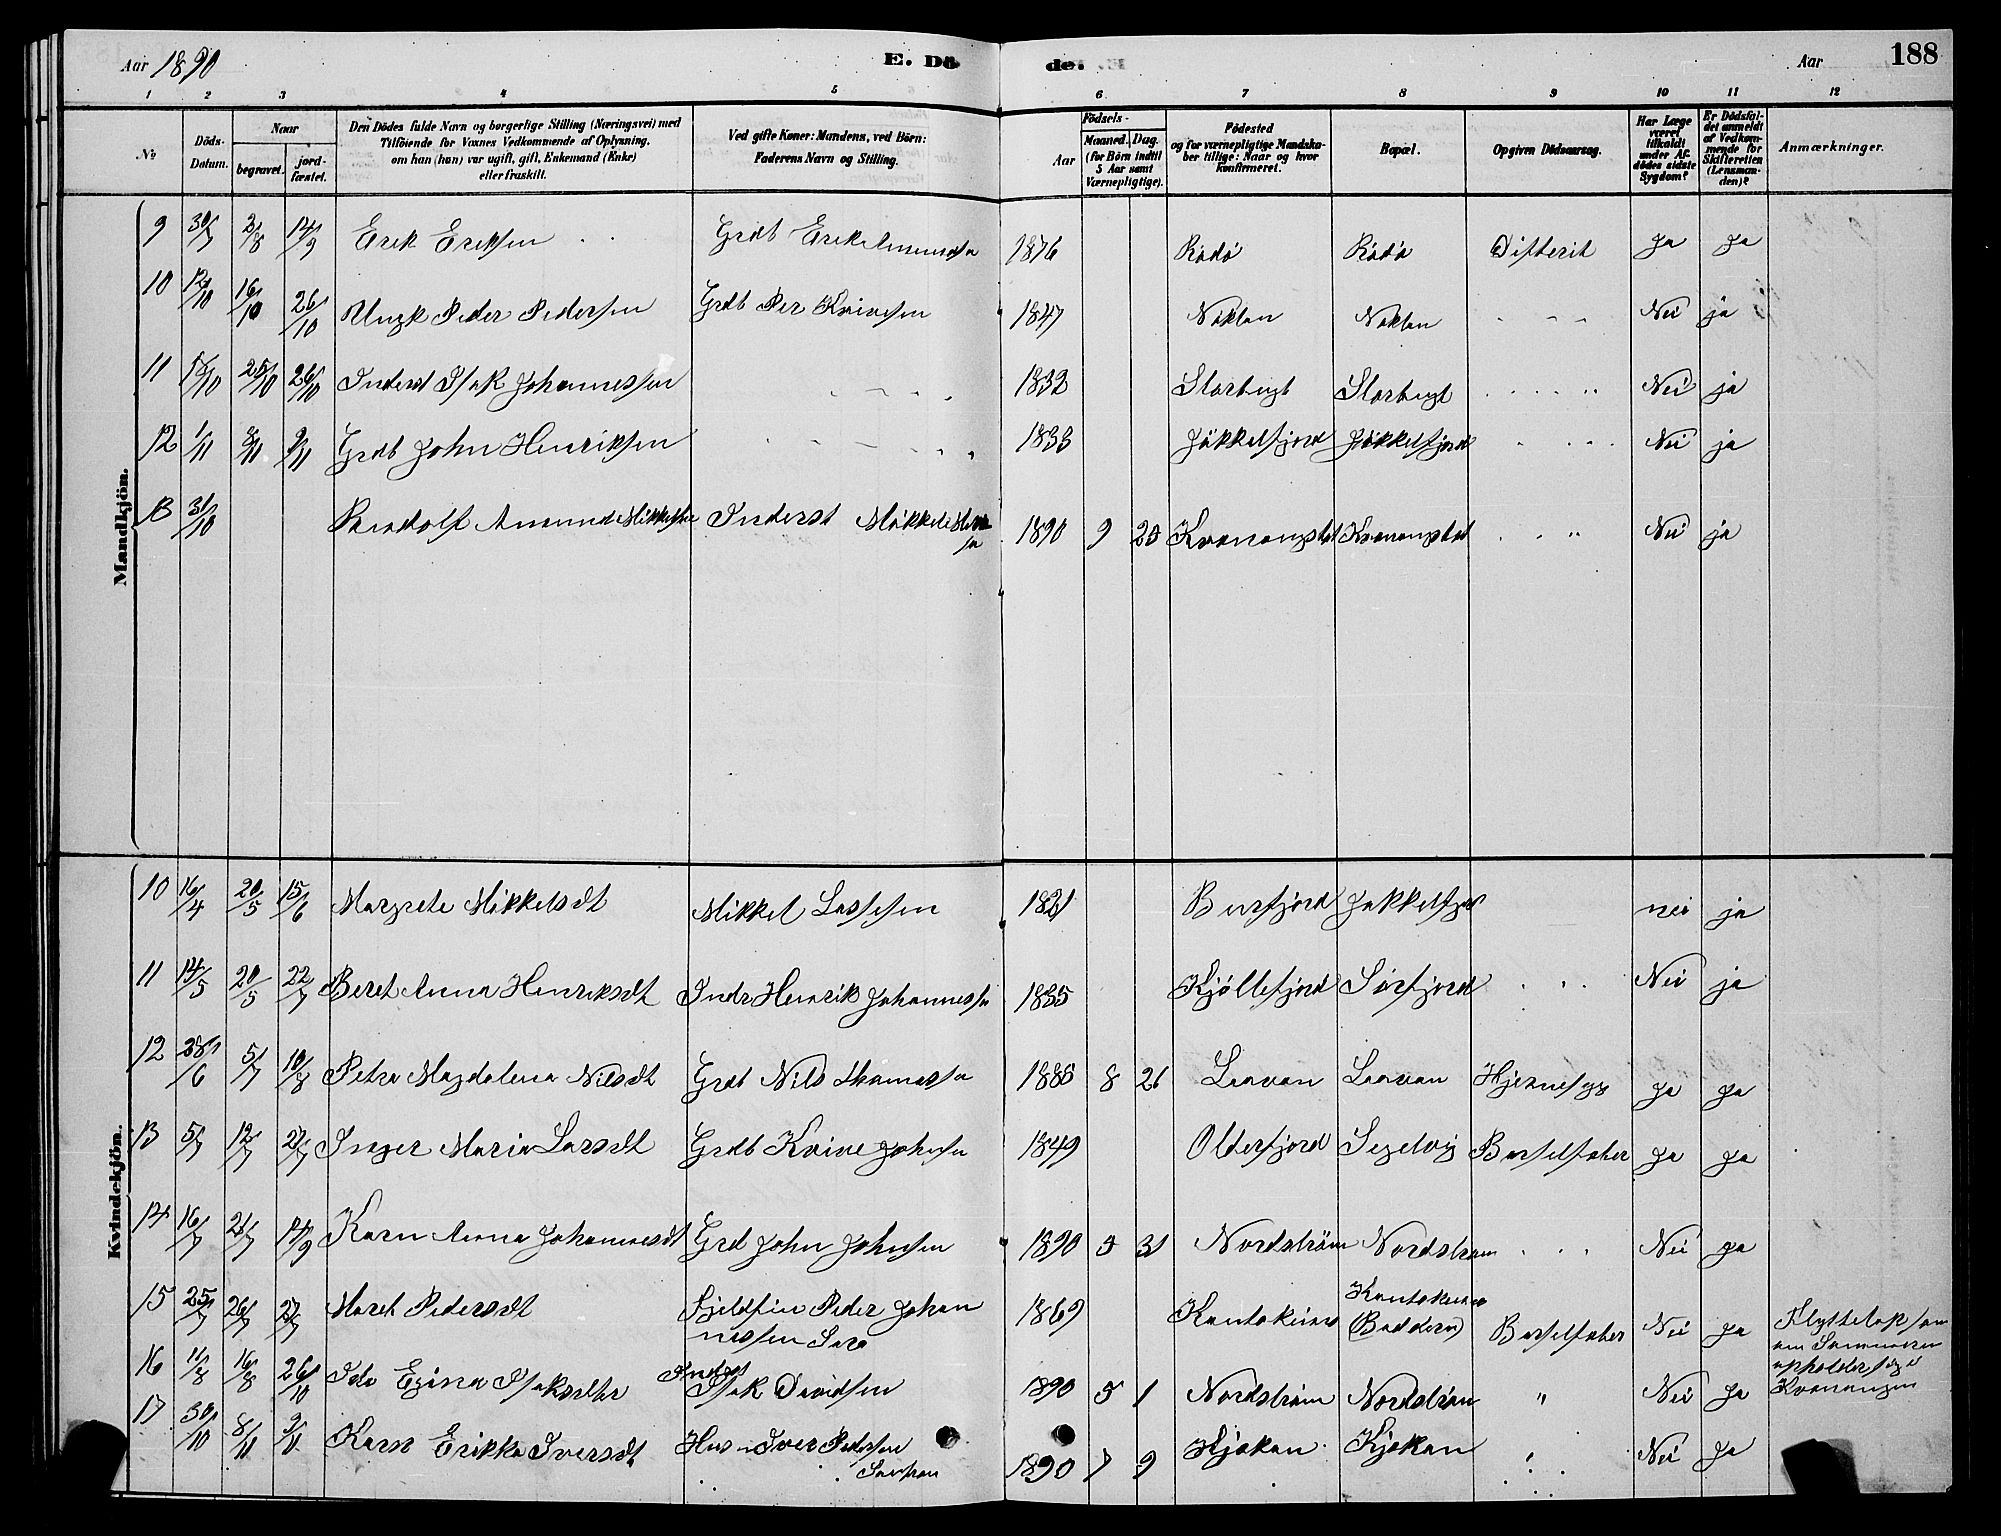 Aar 1890 E. Dö de. Aar 188
1 2 3 4 5 6 7 8 9 10 11 12
No Döds-Datum. Naar begravet. jord-fæstet. Den Dödes fulde Navn og borgerlige Stilling (Næringsvei) med Tilföiende for Voxnes Vedkommende af Oplysning, om han (hun) var ugift, gift, Enkemand (Enke) eller fraskilt. Ved gifte Koner: Mandens, ved Börn: Faderens Navn og Stilling. Födsels- Aar Maaned. Dag. (for Börn indtil 5 Aar samt Værnepligtige). Födested og for værnepligtige Mandskaber tillige: Naar og hvor konfirmeret. Bopæl. Opgiven Dödsaarsag. Har Læge været tilkaldt under Afdödes sidste Sygdom? Er Dödsfaldet anmeldt af Vedkommende for Skifteretten (Lensmanden)? Anmærkninger.
Mandkjön.
9 30/7 2/8 14/9 Erik Eriksen Grdb Erik 1876 Rödö Rödö Difterit Ja Ja
10 12/10 16/10 26/10 Ungk Peder Pedersen Grdb Per Kvivesen 1847 Noklan Noklan - - - Nei ja
11 18/10 25/10 26/10 Inderst Isak Johannessen - - - 1832 Storbugt Storbugt Nei ja
12 1/11 8/11 9/11 Grdb John Henriksen - - - 1833 Jökkelfjord Jökkelfjord Nei ja
13 31/10 Amund Mikkelsen Inderst Mikkel 1890 9 20 Nei ja
Kvindekjön.
10 16/4 20/5 15/6 Margrete Mikkelsdt Mikkel Lassesen 1821 Burfjord Jøkkelfjor nei ja
11 14/5 20/5 22/7 Beret Anna Henriksdt Indr Henrik Johannessn 1835 Kjöllefjord Sörfjord Nei ja
12 28/6 5/7 10/8 Petra Magdalena Nilsdt Grdb Nils Thomassn 1885 8 26 Laavan Laavan Hjernesyg Ja Ja
13 5/7 12/7 27/7 Inger Maria Larsdt Grdb Kvive Johnsn 1849 Olderfjord Segelvig Barselfeber Ja Ja
14 16/7 21/7 14/9 Karn Anna Johannesdt Grd John Johnsen 1890 5 31 Nordström Nordström Nei Ja
15 25/7 26/7 27/7 Maret Pedersdt Fjeldfin Peder Johan 1869 Kautokeino Kautokeino
nessen Sara (Badderen) Barselfeber Nei Ja Flyttelap som
om Sommeren
opholder sig i
Kvænangen
16 11/8 16/8 26/10 Ida Isaksdtr Indrst Isak Davidsen 1890 5 1 Nordström Nordström " Nei Ja
17 30/10 8/11 9/11 Karn Erikka Iversdt Hus Iver Pedersen 1890 7 9 Kjækan Kjækan Nei Ja